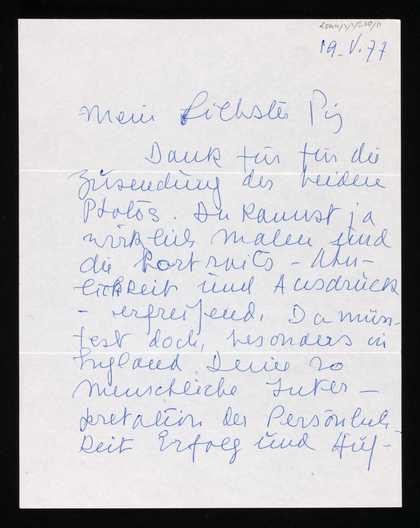 19. V. 77
Mein Liebster Pip
Dank für für die
Zusendung der beiden
Photos. Du kannst ja
wirklich malen sind
die Portraits – Ähn-
lichkeit und Ausdrück
– ergreifend. Du müs-
test doch, besonders in
England Deine so
menschliche Inter–
pretation der Persönlich-
keit Erfolg und Auf-